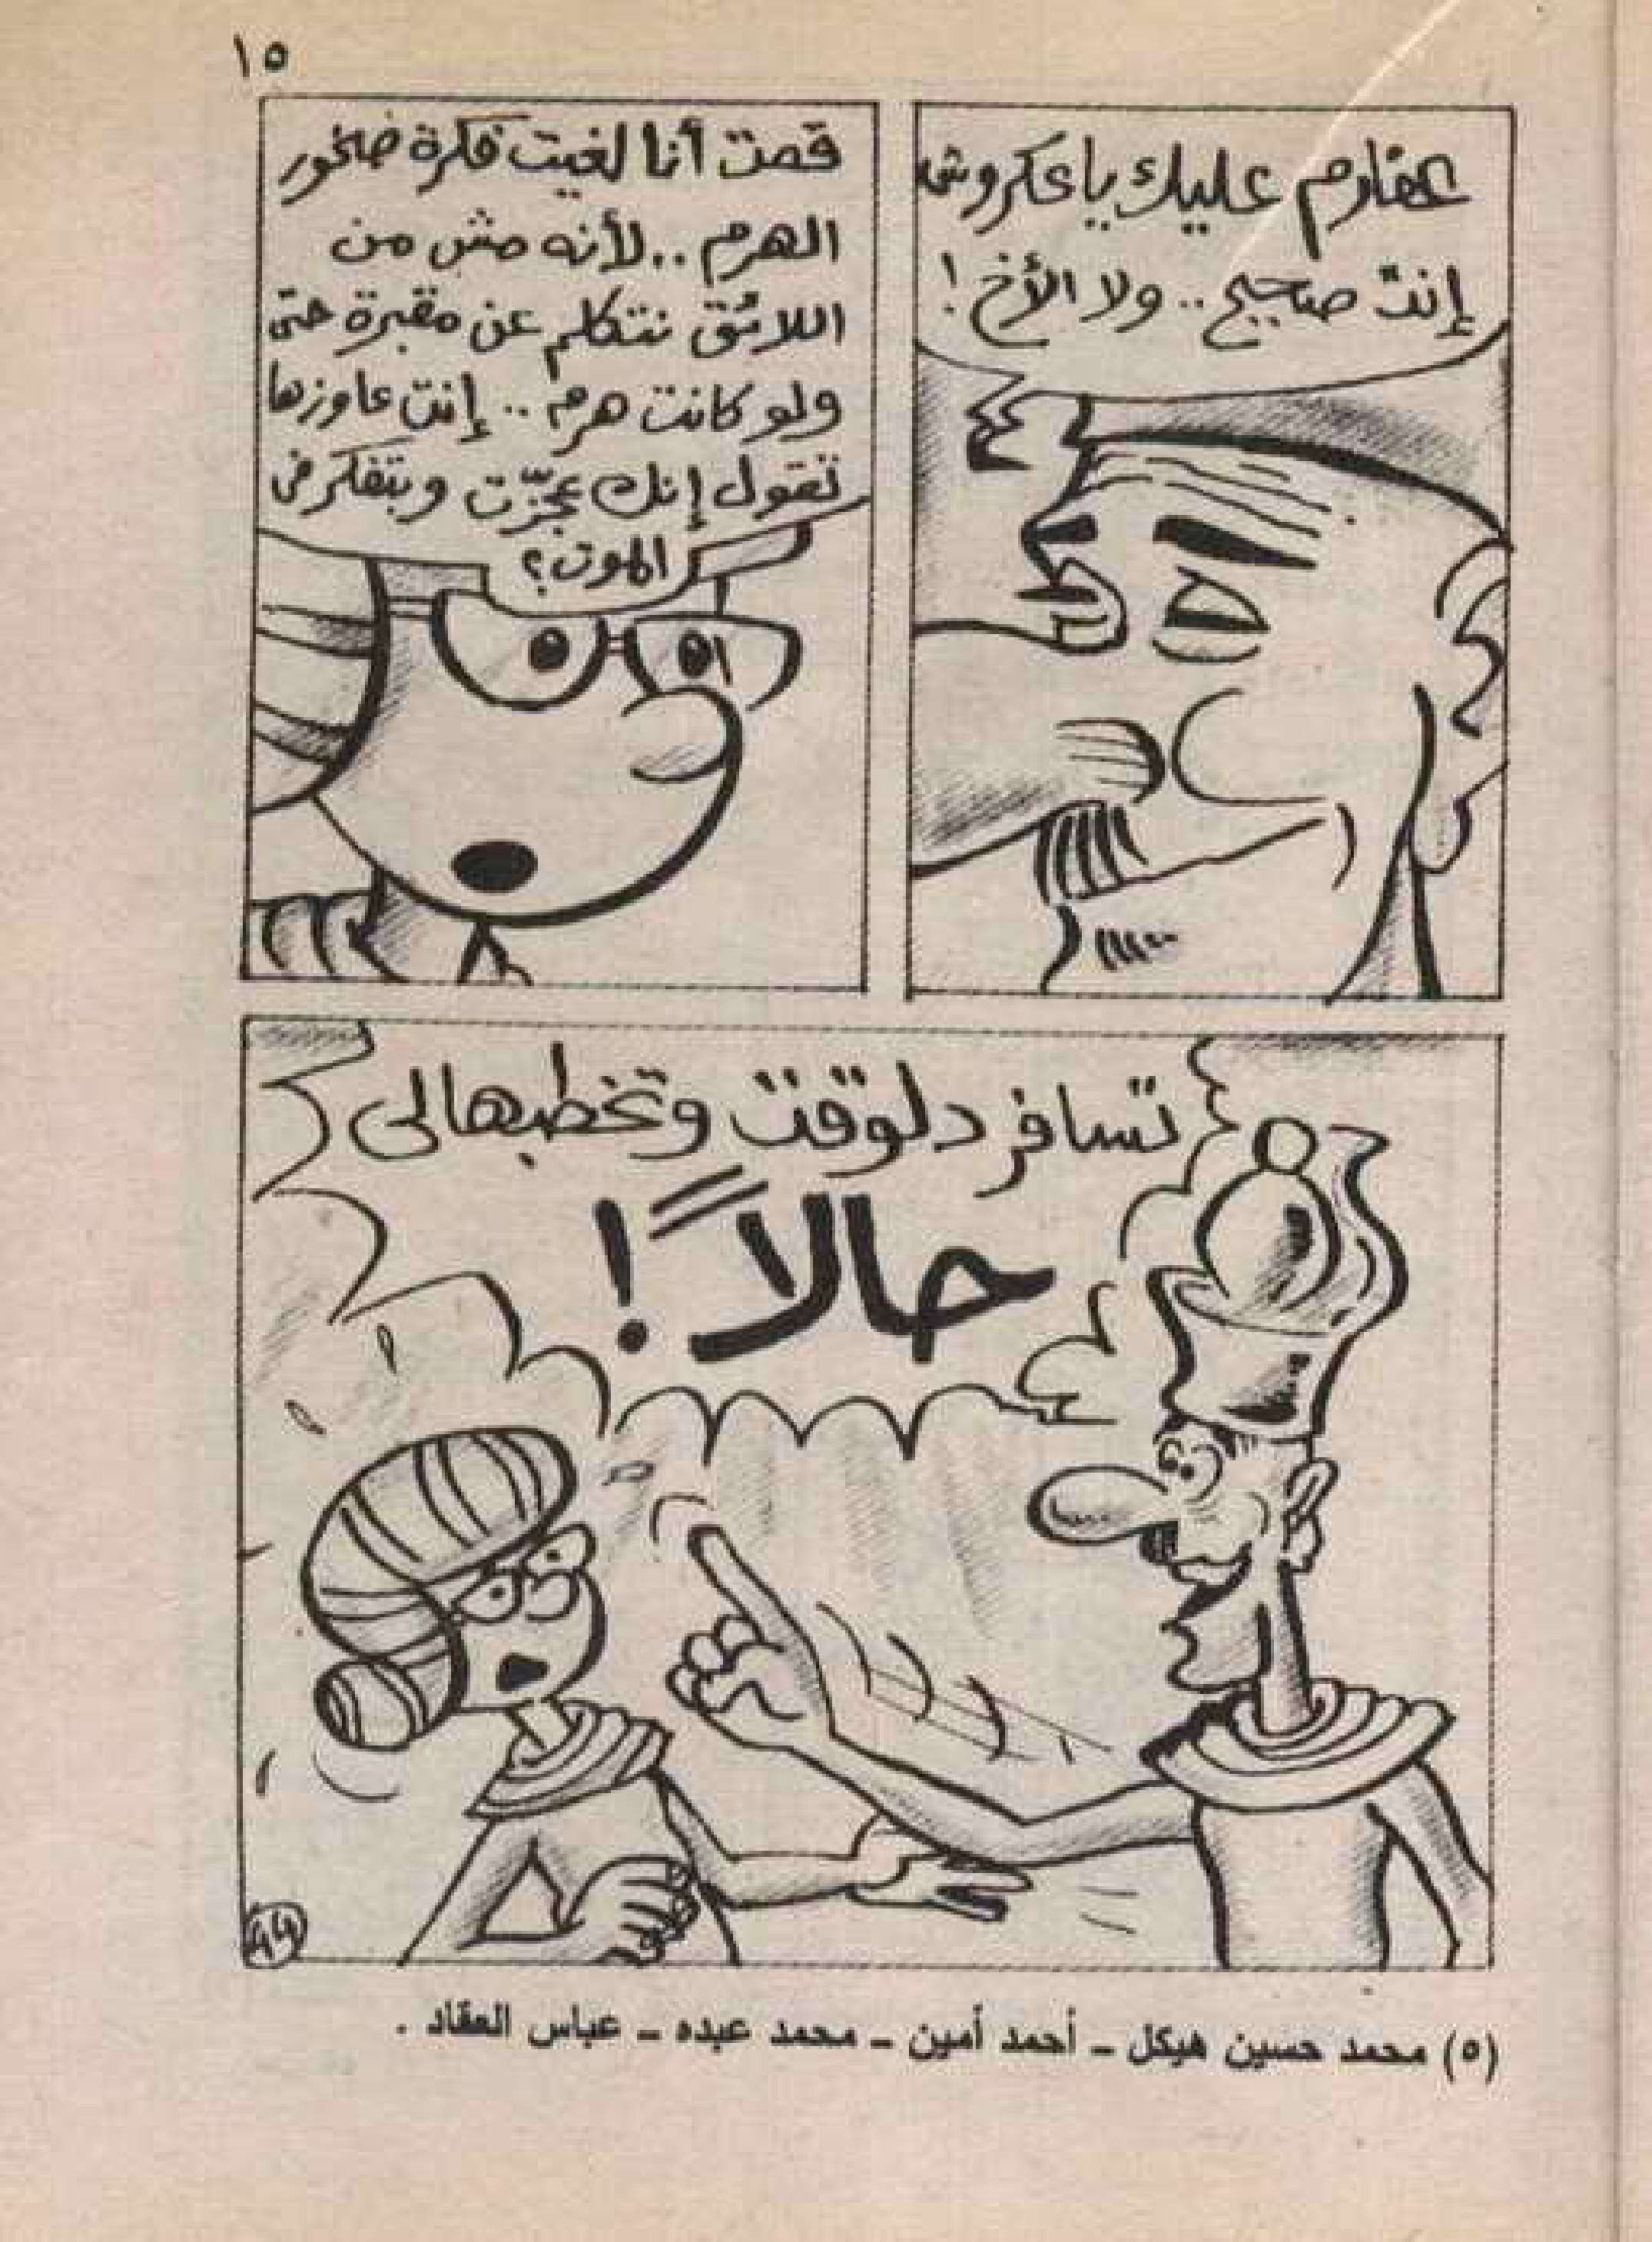 ١٥
عفارم عليك يا عكروش
إنت صحيح .. ولا الأخ !
قمت أنا لغيت فكرة صخور
الهرم .. لأنه مش من
اللائق نتكلم عن مقبرة حتى
ولو كانت هرم .. إنت عاوزها
تقول إنك عجّزت وبتفكر فى
الموت ؟
تسافر دلوقت وتخطبهالى
حالاً !
٤٩
(٥) محمد حسين هيكل ــ أحمد أمين ــ محمد عبده ــ عباس العقاد .